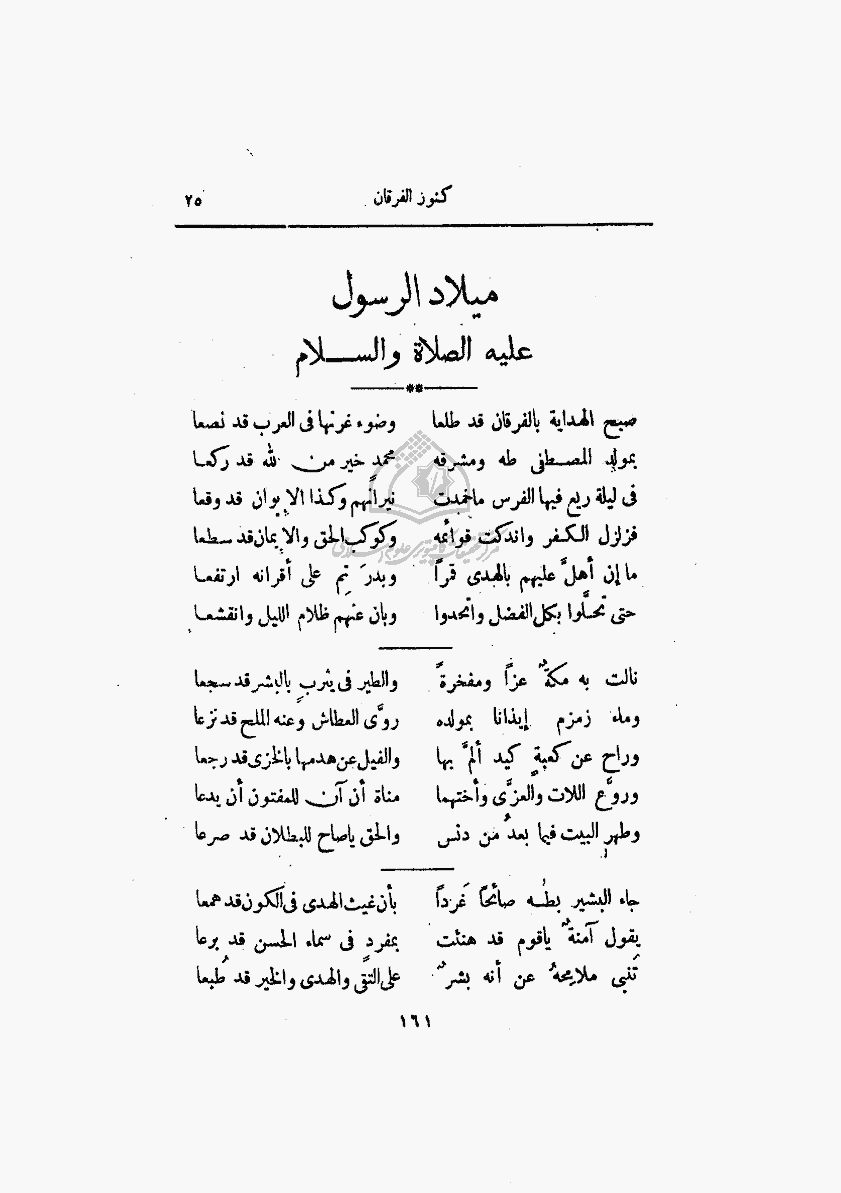 كنوز الفرقان ٢٥
ميلاد الرسول
عليه الصلاة والسـلام
صبح الهداية بالفرقان قد طلعا وضوء غرتها فى العرب قد نصعا
بمولدِ المصـطفى طه ومشرقه محمدٍ خير من لله قد ركعـا
فى ليلة ريع فيها الفرس ماخمدت نيرانُهم وكـذا الإيوان قد وقعا
فزلزل الكـفر واندكت قوائمه وكوكب الحق والإيمان قد سطعا
ما إن أهلَّ عليهم بالهدى قمراً وبدرَ تِم على أقرانه ارتفعـا
حتى تحـلَّوا بكل الفضل واتحدوا وبان عنهم ظلام الليل وانقشعـا
نالت به مكةٌ عزاً ومفخرةً والطير فى يثربٍ بالبشر قد سجعا
وماء زمزم إيذانا بمولده روَّى العطاش وعنه الملح قد نزعا
وراح عن كعبةٍ كيد ألمَّ بها والفيل عن هدمها بالخزى قد رجعا
وروَّع اللات والعزَّى وأختهما مناة أن آن للمفتون أن يدعا
وطهر البيت فيما بعدُ من دنس والحق ياصاح للبطلان قد صرعا
جاء البشير بطـه صائحاً غَرِداً بأن غيث الهدى فى الكون قد همعا
يقول آمنةٌ ياقوم قد هنئت بمفردٍ فى سماء الحسن قد برعا
تَنبى ملامحهُ عن أنه بشرٌ على التقى والهدى والخير قد طُبعا
١٦١